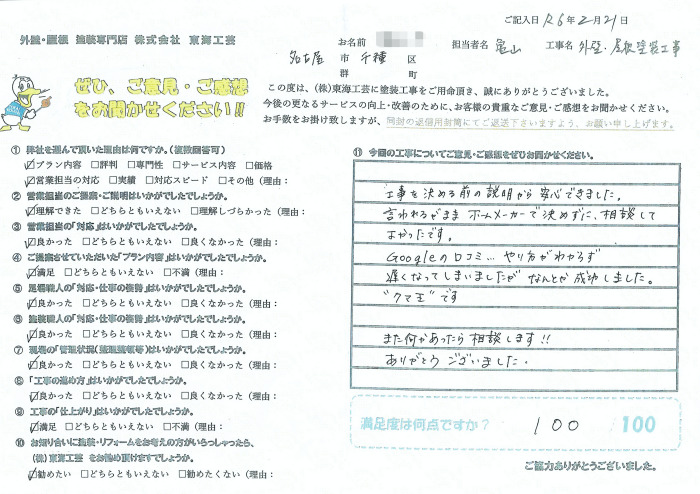 ご記入日 R6年2月21日
外壁・屋根 塗装専門店 株式会社 東海工芸
お名前
担当者名 亀山 工事名 外壁・屋根塗装工事
名古屋 市 千種 区
郡 町
ぜひ、ご意見・ご感想
をお聞かせください!!
この度は、(株)東海工芸に塗装工事をご用命頂き、誠にありがとうございました。
今後の更なるサービスの向上・改善のために、お客様の貴重なご意見・ご感想をお聞かせください。
お手数をお掛け致しますが、同封の返信用封筒にてご返送下さいますよう、お願い申し上げます。
① 弊社を選んで頂いた理由は何ですか。(複数回答可)
☑プラン内容 □評判 □専門性 □サービス内容 □価格
☑営業担当の対応 □実績 □対応スピード □その他(理由:
② 営業担当のご提案・ご説明はいかがでしたでしょうか。
☑理解できた □どちらともいえない □理解しづらかった(理由:
③ 営業担当の「対応」はいかがでしたでしょうか。
☑良かった □どちらともいえない □良くなかった(理由:
④ ご提案させていただいた「プラン内容」はいかがでしたでしょうか。
☑満足 □どちらともいえない □不満(理由:
⑤ 足場職人の「対応・仕事の姿勢」はいかがでしたでしょうか。
☑良かった □どちらともいえない □良くなかった(理由:
⑥ 塗装職人の「対応・仕事の姿勢」はいかがでしたでしょうか。
☑良かった □どちらともいえない □良くなかった(理由:
⑦ 現場の「管理状況(整理整頓等)はいかがでしたでしょうか。
☑良かった □どちらともいえない □良くなかった(理由:
⑧ 「工事の進め方」はいかがでしたでしょうか。
☑満足 □どちらともいえない □不満(理由:
⑨ 工事の「仕上がり」はいかがでしたでしょうか。
☑満足 □どちらともいえない □不満(理由:
⑩ お知り合いに塗装・リフォームをお考えの方がいらっしゃったら、
(株)東海工芸 をお勧め頂けますでしょうか。
☑勧めたい □どちらともいえない □勧めたくない(理由:
⑪ 今回の工事についてご意見・ご感想をぜひお聞かせください。
工事を決める前の説明から安心できました。
言われるがまま ホームメーカーで決めずに、相談して
よかったです。
Googleの口コミ… やり方がわからず
遅くなってしまいましたが なんとか成功しました。
"クマ王"です
また何かあったら相談します!!
ありがとうございました.
満足度は何点ですか? 100 /100
ご協力ありがとうございました。